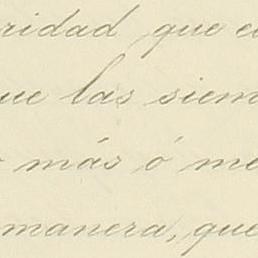 ridad que e
que las siem
más ó me
manera, que